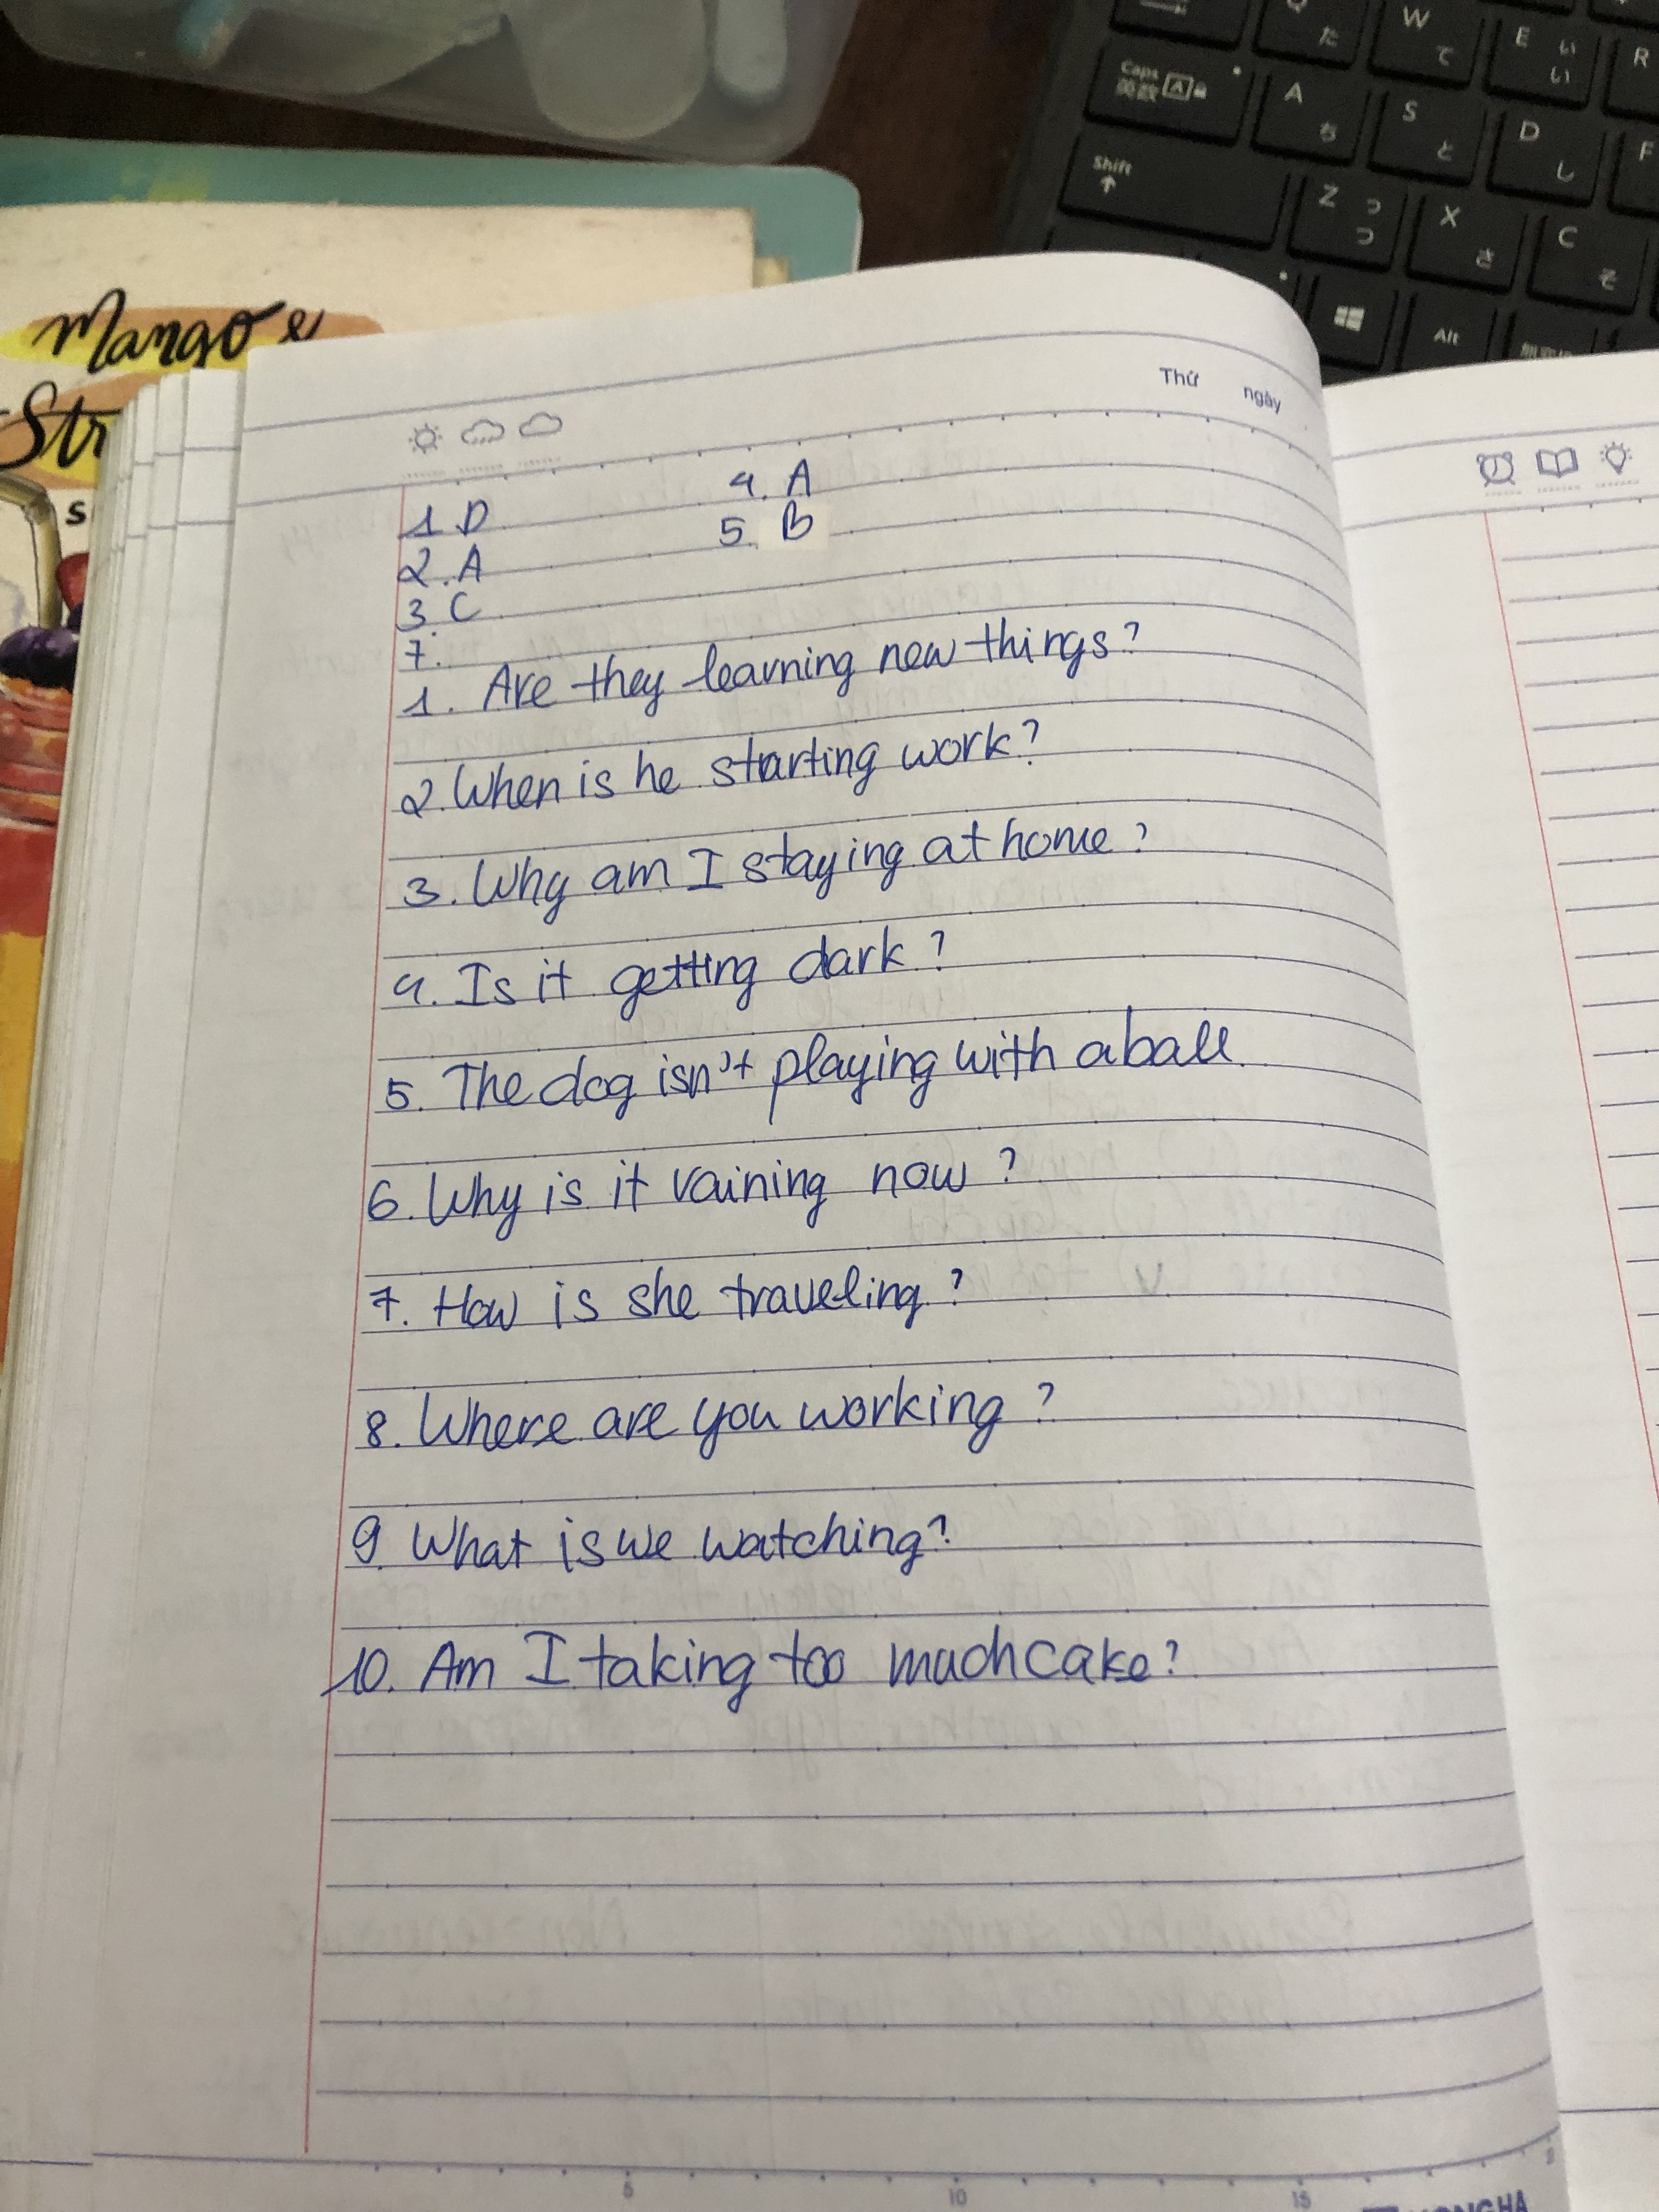 Q た
W て
E い い
R
Caps 英数 A
A ち
S と
D し
F
Shift
Z つ っ
X さ
C そ
Alt
Mango &
Str
S
Thứ ngày
1 D
4. A
2. A
5. B
3. C
7.
1. Are they learning new things?
2. When is he starting work?
3. Why am I staying at home?
4. Is it getting dark?
5. The dog isn't playing with a ball
6. Why is it raining now?
7. How is she traveling?
8. Where are you working?
9. What is we watching?
10. Am I taking too much cake?
5 10 15
HONG HA